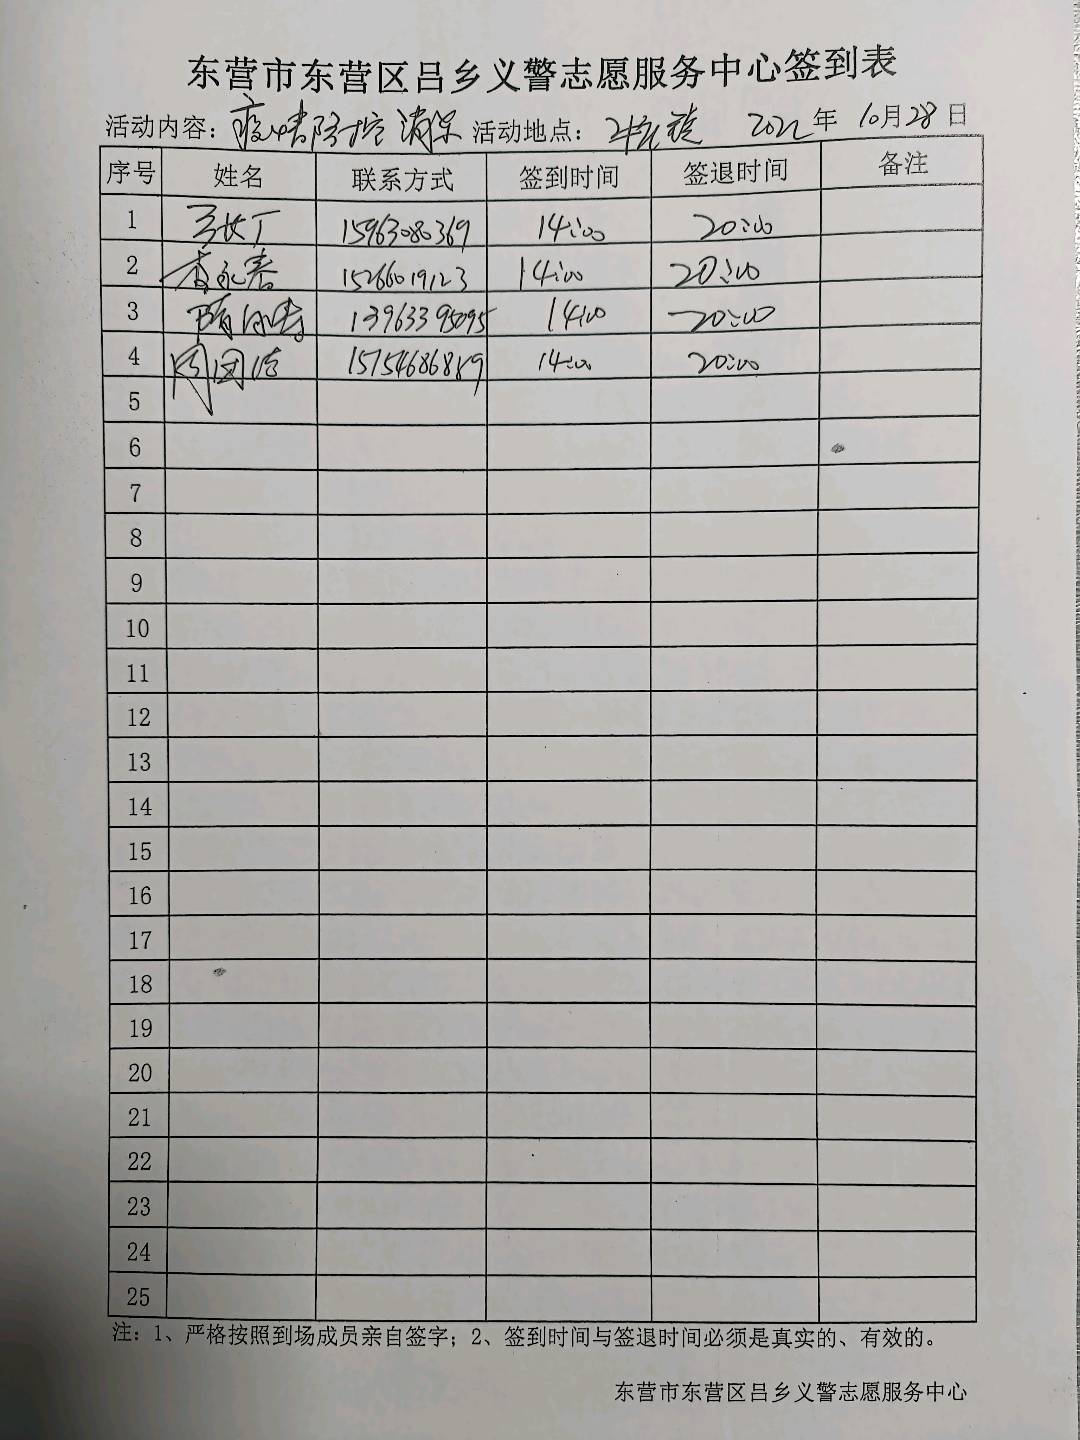 东营市东营区吕乡义警志愿服务中心签到表
活动内容：疫情防控消杀 活动地点： 2022年10月28日
序号 姓名 联系方式 签到时间 签退时间 备注
1 15963080369 14:00 20:00
2 15266019123 14:00 20:00
3 13963395095 14:00 20:00
4 周团结 15754686889 14:00 20:00
5
6
7
8
9
10
11
12
13
14
15
16
17
18
19
20
21
22
23
24
25
注：1、严格按照到场成员亲自签字；2、签到时间与签退时间必须是真实的、有效的。
东营市东营区吕乡义警志愿服务中心